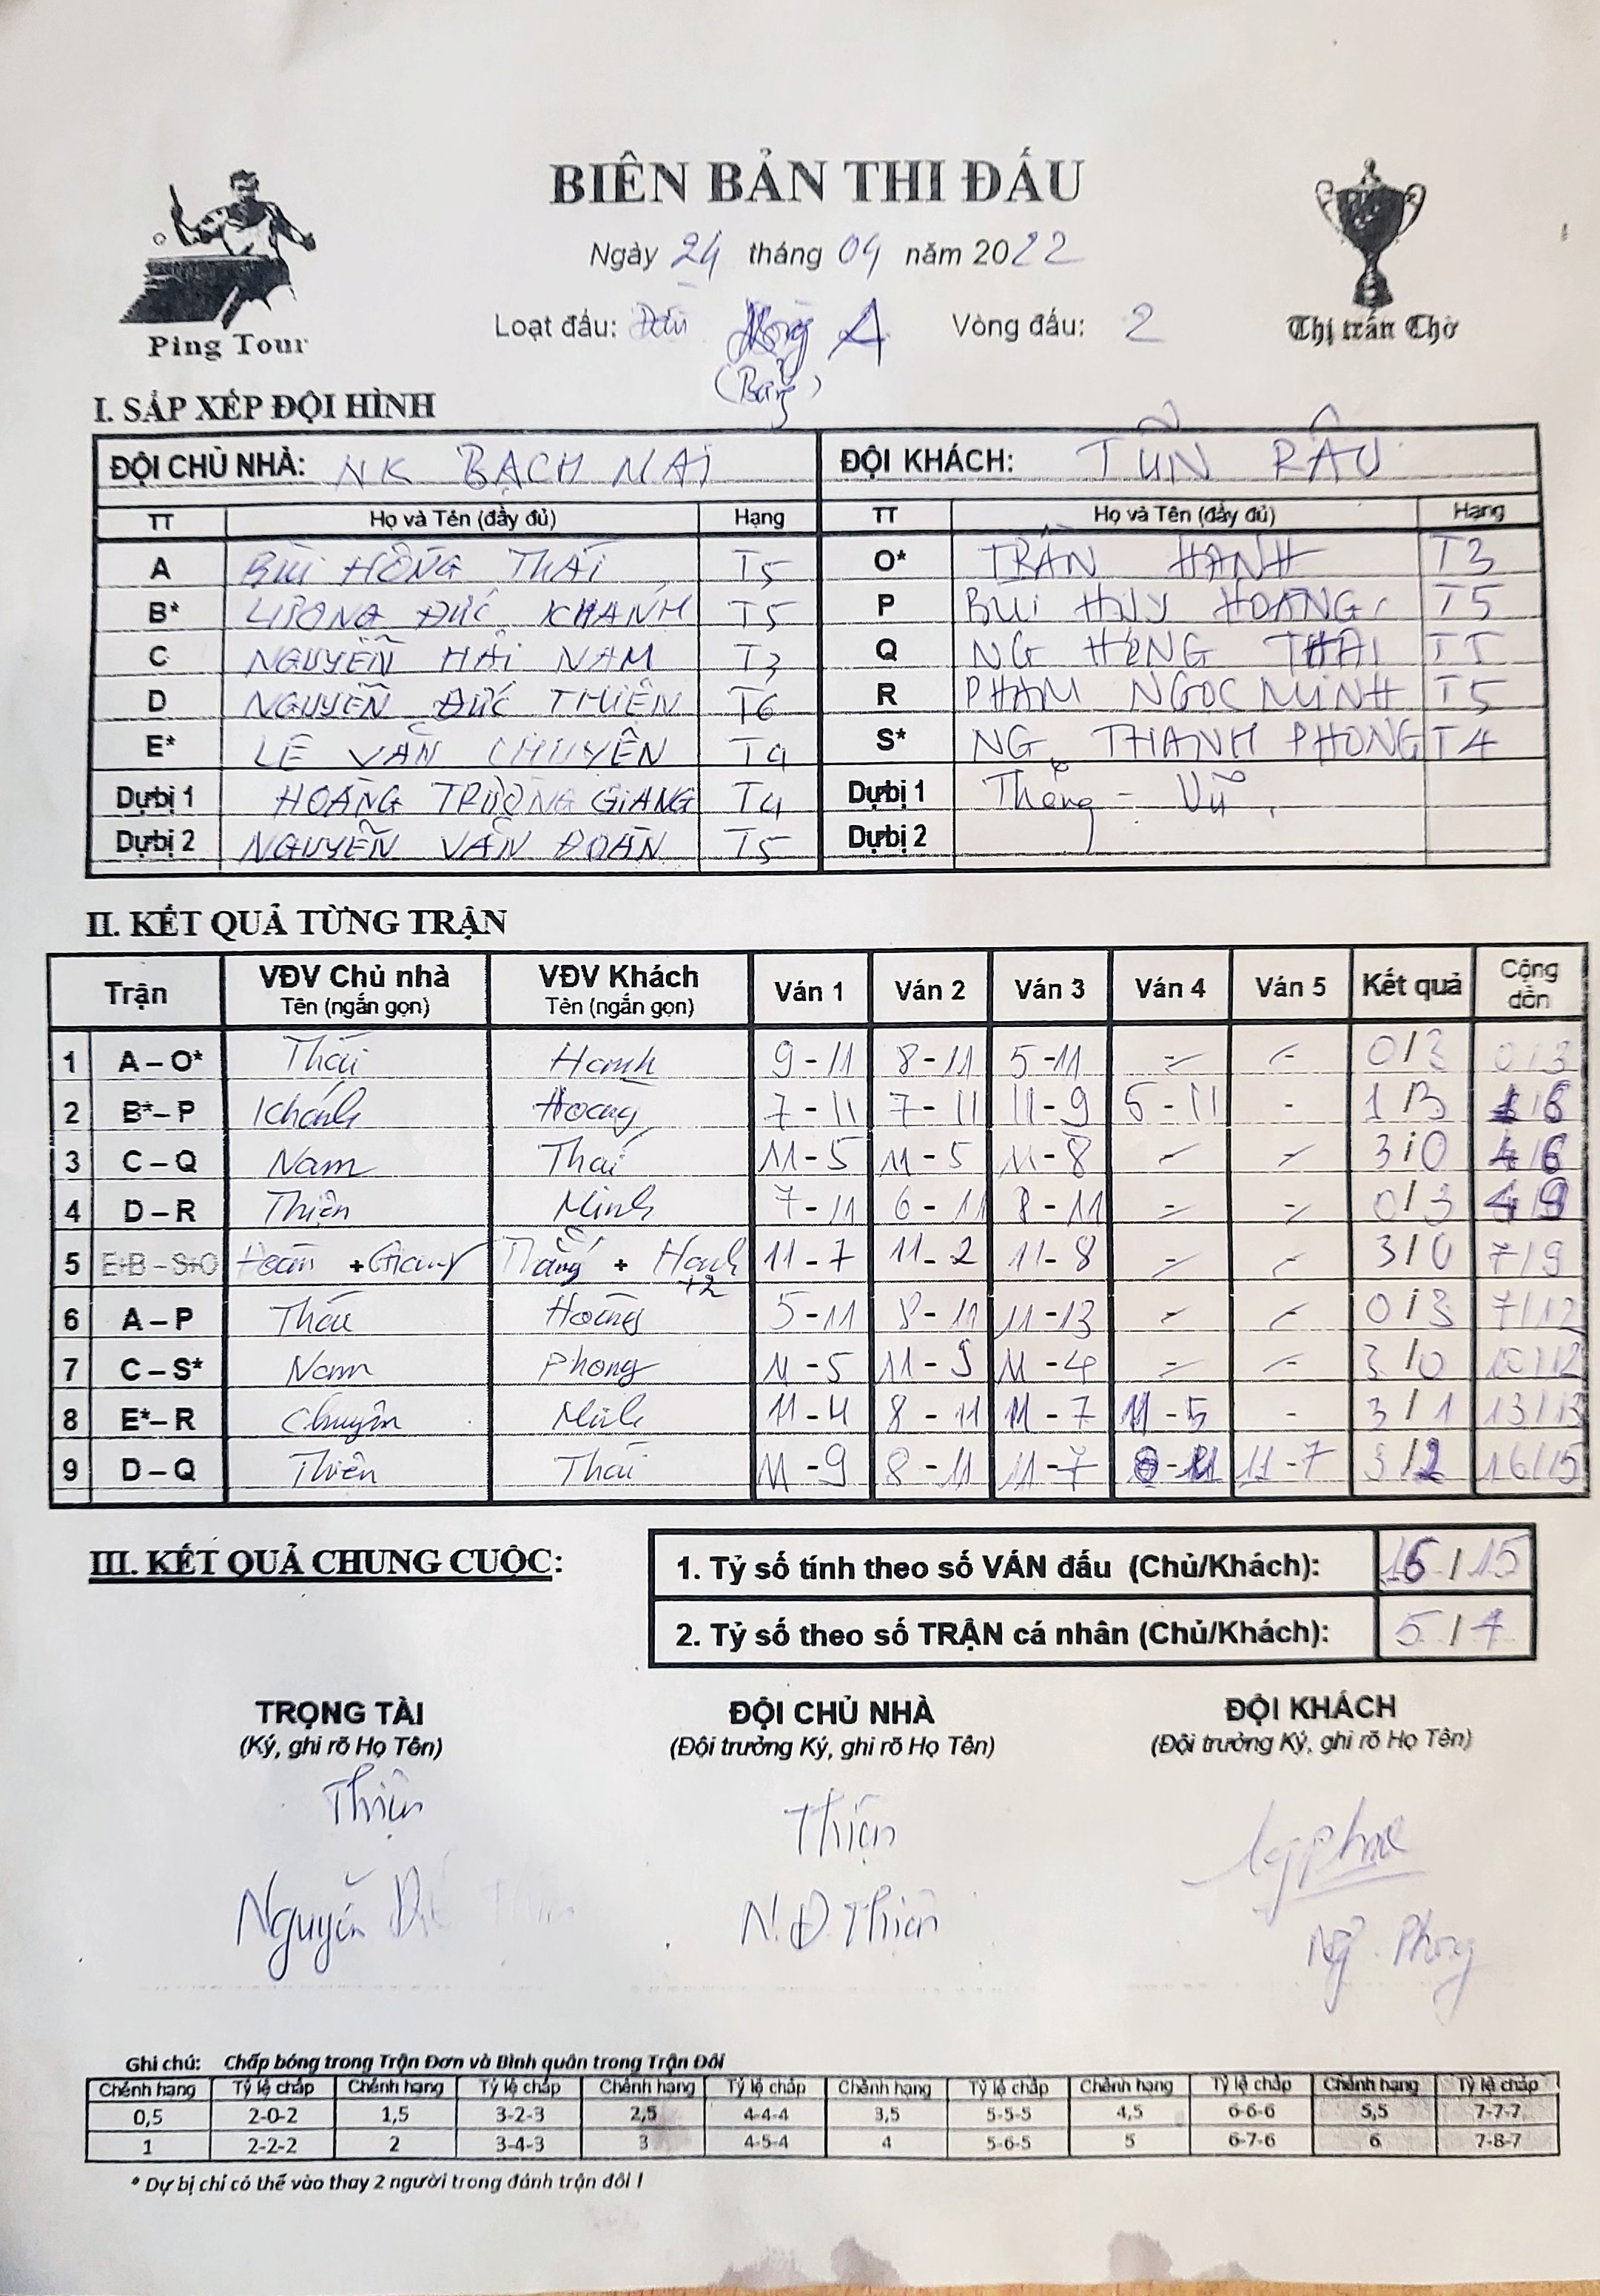 BIÊN BẢN THI ĐẤU
Ping Tour
Thị trấn Chờ
Ngày 24 tháng 04 năm 2022
Loạt đấu: A Vòng đấu: 2
(Bảng)
I. SẮP XẾP ĐỘI HÌNH
ĐỘI CHỦ NHÀ: NK BẠCH MAI ĐỘI KHÁCH: TŨN RÂU
TT Họ và Tên (đầy đủ) Hạng TT Họ và Tên (đầy đủ) Hạng
A BÙI HỒNG THÁI T5 O* TRẦN HẠNH T3
B* LƯƠNG ĐỨC KHÁNH T5 P BÙI HUY HOÀNG T5
C NGUYỄN HẢI NAM T3 Q NG HÙNG THÁI T5
D NGUYỄN ĐỨC THIỆN T6 R PHẠM NGỌC MINH T5
E* LÊ VĂN CHUYÊN T4 S* NG. THANH PHONG T4
Dự bị 1 HOÀNG TRƯỜNG GIANG T4 Dự bị 1 Thắng - Vũ.
Dự bị 2 NGUYỄN VĂN ĐOÀN T5 Dự bị 2
II. KẾT QUẢ TỪNG TRẬN
Trận VĐV Chủ nhà VĐV Khách Ván 1 Ván 2 Ván 3 Ván 4 Ván 5 Kết quả Cộng dồn
Tên (ngắn gọn) Tên (ngắn gọn)
1 A – O* Thái Hạnh 9 - 11 8 - 11 5 - 11 - - 0 / 3 0 / 3
2 B* – P Khánh Hoàng 7 - 11 7 - 11 11 - 9 5 - 11 - 1 / 3 1 / 6
3 C – Q Nam Thái 11 - 5 11 - 5 11 - 8 - - 3 / 0 4 / 6
4 D – R Thiện Minh 7 - 11 6 - 11 8 - 11 - - 0 / 3 4 / 9
5 E+B – S+O Đoàn + Giang Thắng + Hạnh +2 11 - 7 11 - 2 11 - 8 - - 3 / 0 7 / 9
6 A – P Thái Hoàng 5 - 11 8 - 11 11 - 13 - - 0 / 3 7 / 12
7 C – S* Nam Phong 11 - 5 11 - 9 11 - 4 - - 3 / 0 10 / 12
8 E* – R Chuyên Minh 11 - 4 8 - 11 11 - 7 11 - 5 - 3 / 1 13 / 13
9 D – Q Thiện Thái 11 - 9 8 - 11 11 - 7 8 - 11 11 - 7 3 / 2 16 / 15
III. KẾT QUẢ CHUNG CUỘC:
1. Tỷ số tính theo số VÁN đấu (Chủ/Khách): 16 / 15
2. Tỷ số theo số TRẬN cá nhân (Chủ/Khách): 5 / 4
TRỌNG TÀI ĐỘI CHỦ NHÀ ĐỘI KHÁCH
(Ký, ghi rõ Họ Tên) (Đội trưởng Ký, ghi rõ Họ Tên) (Đội trưởng Ký, ghi rõ Họ Tên)
Thiện Thiện
Nguyễn Đức Thiện N.Đ.Thiện Ng. Phong
Ghi chú: Chấp bóng trong Trận Đơn và Bình quân trong Trận Đôi
Chênh hạng Tỷ lệ chấp Chênh hạng Tỷ lệ chấp Chênh hạng Tỷ lệ chấp Chênh hạng Tỷ lệ chấp Chênh hạng Tỷ lệ chấp Chênh hạng Tỷ lệ chấp
0,5 2-0-2 1,5 3-2-3 2,5 4-4-4 3,5 5-5-5 4,5 6-6-6 5,5 7-7-7
1 2-2-2 2 3-4-3 3 4-5-4 4 5-6-5 5 6-7-6 6 7-8-7
* Dự bị chỉ có thể vào thay 2 người trong đánh trận đôi !